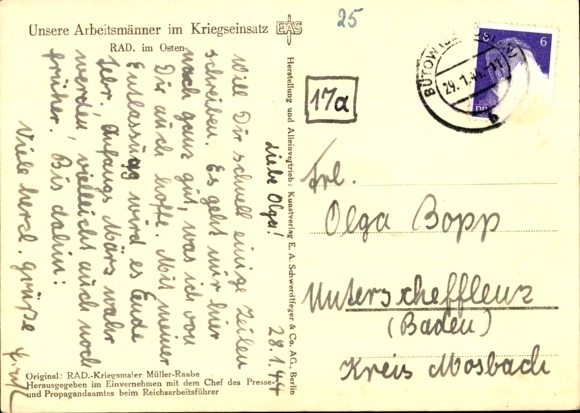 Unsere Arbeitsmänner im Kriegseinsatz
EAS
RAD. im Osten
25
BÜTOW
29.1.44
6
b
17a
Liebe Olga!
28.1.44
Will Dir schnell einige Zeilen
schreiben. Es geht mir hier
noch ganz gut, was ich von
Dir auch hoffe. Mit meiner
Entlassung wird es Ende
Febr. Anfangs März wahr
werden, vielleicht auch noch
früher. Bis dahin:
Viele herzl. Grüße
Herstellung und Alleinvertrieb: Kunstverlag E. A. Schwerdtfeger & Co. AG., Berlin
Frl.
Olga Bopp
Unterschefflenz
(Baden)
Kreis Mosbach
Original: RAD.-Kriegsmaler Müller-Raabe
Herausgegeben im Einvernehmen mit dem Chef des Presse-
und Propagandaamtes beim Reichsarbeitsführer